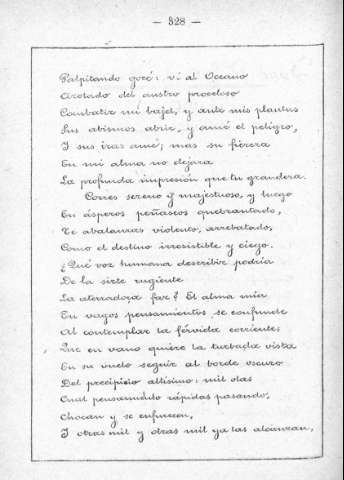 — 328 —
Palpitando gocé: ví al Oceano
Azotado del austro proceloso
Combatir mi bajel, y ante mis plantas
Sus abismos abrir, y amé el peligro,
Y sus iras amé; mas su fiereza
En mi alma no dejara
La profunda impresión que tu grandeza.
Corres sereno y majestuoso, y luego
En ásperos peñascos quebrantado,
Te abalanzas violento, arrebatado,
Como el destino irresistible y ciego.
¿Qué voz humana describir podría
De la sirte rugiente
La aterradora faz? El alma mía
En vagos pensamientos se confunde
Al contemplar la férvida corriente,
Que en vano quiere la turbada vista
En su vuelo seguir al borde oscuro
Del precipicio altísimo: mil olas
Cual pensamiento rápidas pasando,
Chocan y se enfurecen,
Y otras mil y otras mil ya las alcanzan,